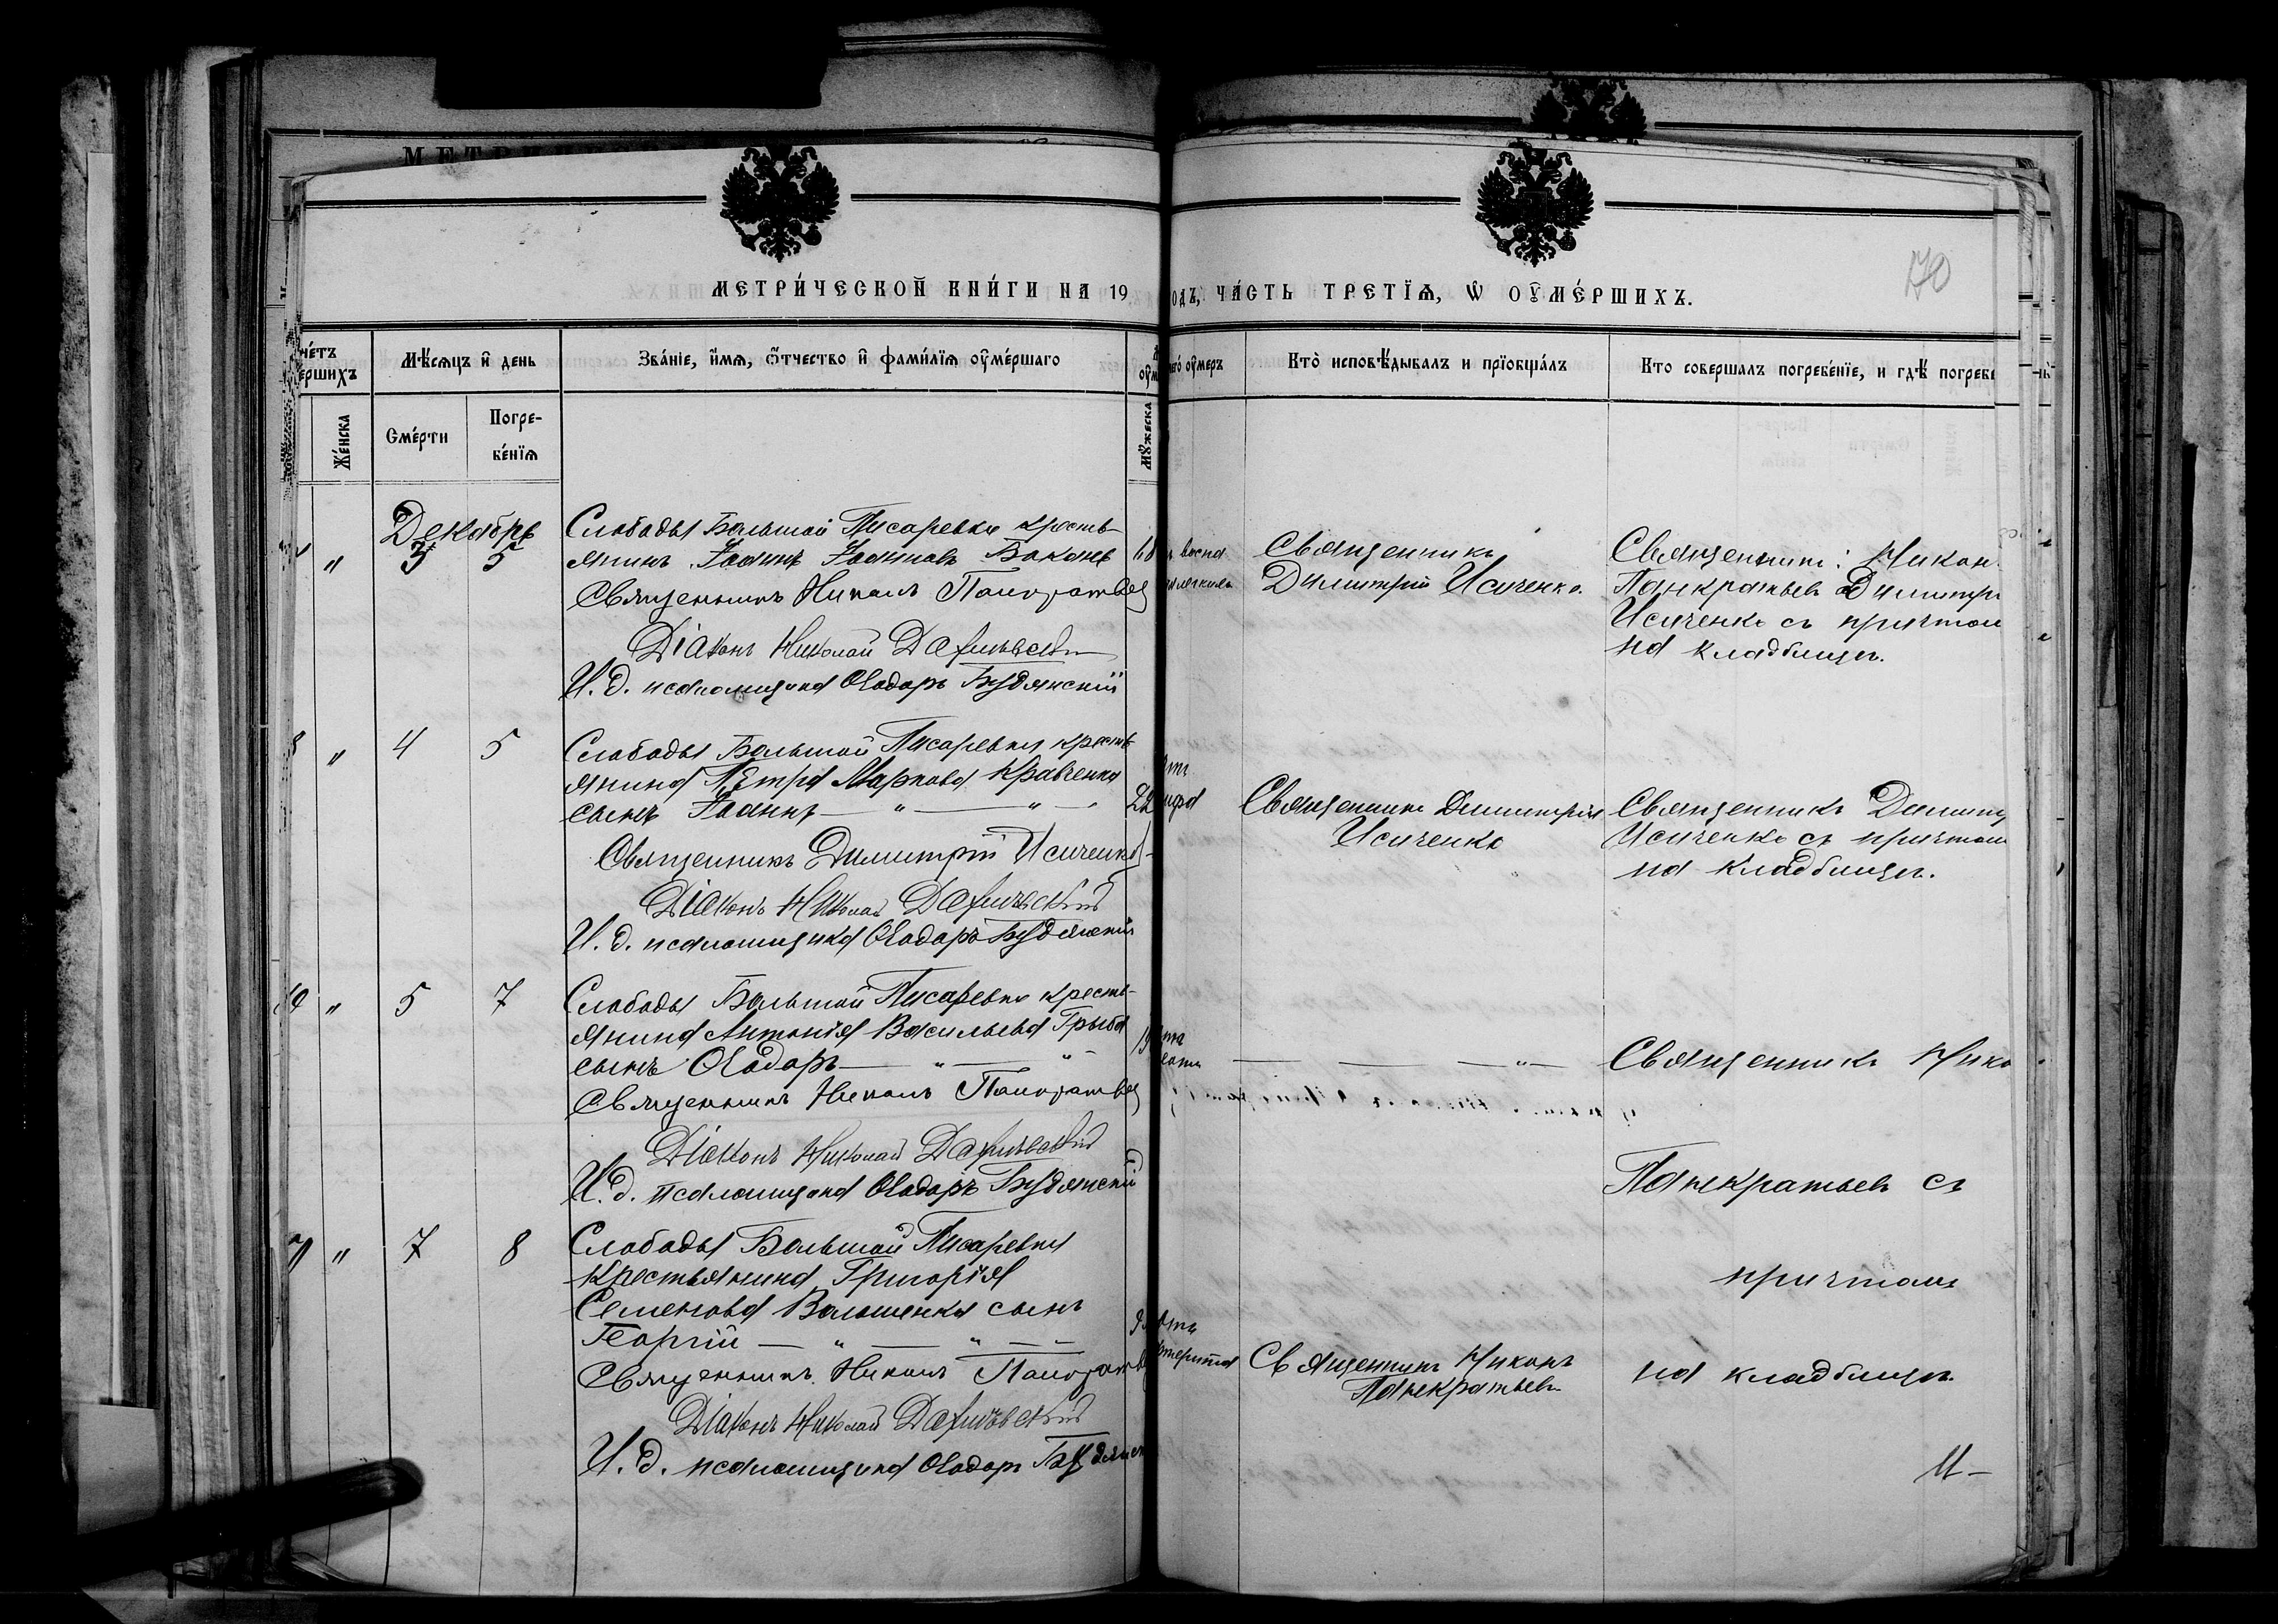 МЕТРИ́ЧЕСКОЙ КНИ́ГИ НА 19
одъ, ЧА́СТЬ ТРЕТІѦ, Ѡ ОУМЕ́РШИХЪ.
170
че́тъ
ершихъ
Мѣ́сѧцъ и҆ день
Зва́нїе, и҆́мѧ, ѻ҆́тчество и҆ фами́лїѧ оу҆ме́ршаго
его́ оу҆́меръ
Кто̀ исповѣ́дывалъ и прїобща́лъ
Кто совершалъ погребе́нїе, и гдѣ̀ погребе
Же́нска
Сме́рти
Погре-
бе́нїѧ
Мꙋ́жеска
Декабрь
" 3 5
Слободы Большой Писаревки кресть-
янинъ Іоаннъ Іоанновъ Баканъ
Священникъ Никонъ Панкратьев
Діаконъ Николай
И. д. псаломщика Ѳеодоръ Будянскій
68
Священникъ
Димитрій Исиченко.
Священники: Никон
Панкратьевъ Димитрі
Исиченко съ причтом
на кладбищѣ.
8 " 4 5
Слободы Большой Писаревки кресть-
янина Петра Маркова Кравченка
сынъ Іоаннъ — " — " —
Священникъ Димитрій Исиченко
Діаконъ Николай
И. д. псаломщика Ѳеодоръ Будянскій
22
Священникъ Димитрій
Исиченко
Священникъ Димит
Исиченко съ причтом
на кладбищѣ.
" 5 7
Слободы Большой Писаревки кресть-
янина Антонія Васильева Грыба
сынъ Ѳеодоръ — " — " —
Священникъ Никонъ Панкратьев
Діаконъ Николай
И. д. псаломщика Ѳеодоръ Будянскій
— — — " —
Священникъ Нико
Панкратьевъ съ
причтомъ
на кладбищѣ.
" 7 8
Слободы Большой Писаревки
крестьянина Григорія
Семенова Волошенка сынъ
Георгій — " — " —
Священникъ Никонъ Панкратьев
Діаконъ Николай
И. д. псаломщика Ѳеодоръ Будянск
Священникъ Никонъ
Панкратьевъ